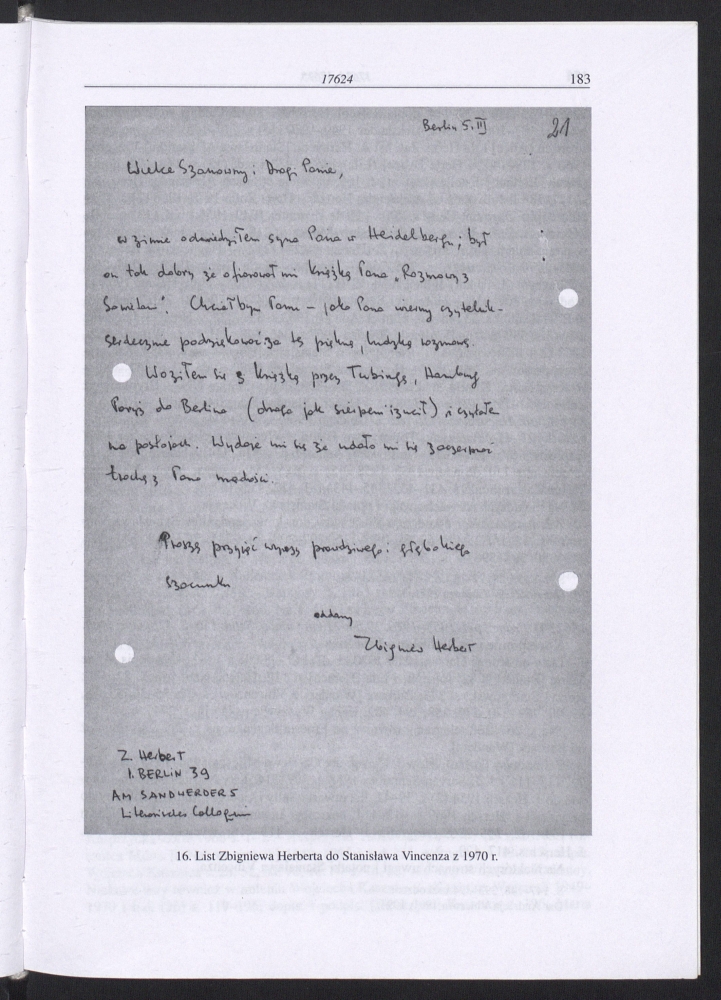 17624 183
Berlin 5.III 21
Wielce Szanowny i Drogi Panie,
w zimie odwiedziłem syna Pana w Heidelbergu; był
on tak dobry że ofiarował mi książkę Pana „Rozmowy z
Sowietami". Chciałbym Panu – jako Pana wierny czytelnik-
serdecznie podziękować za tę piękną, ludzką rozmowę.
Woziłem się z książką przez Tubingę, Hamburg
Paryż do Berlina (droga jak sierpem rzucił) i czytałem
na postojach. Wydaje mi się że udało mi się zaczerpnąć
trochę z Pana mądrości.
Proszę przyjąć wyrazy prawdziwego i głębokiego
szacunku
oddany
Zbigniew Herbert
Z. Herbert
1. BERLIN 39
AM SANDWERDER 5
Literarisches Colloquium
16. List Zbigniewa Herberta do Stanisława Vincenza z 1970 r.